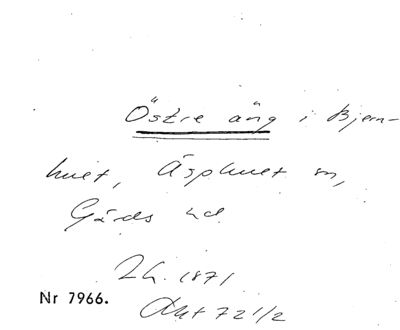 Östre äng i Bjern-
hult, Äsphult sn,
Gärds hd
Lh. 1871
Nr 7966.
Akt 72 1/2